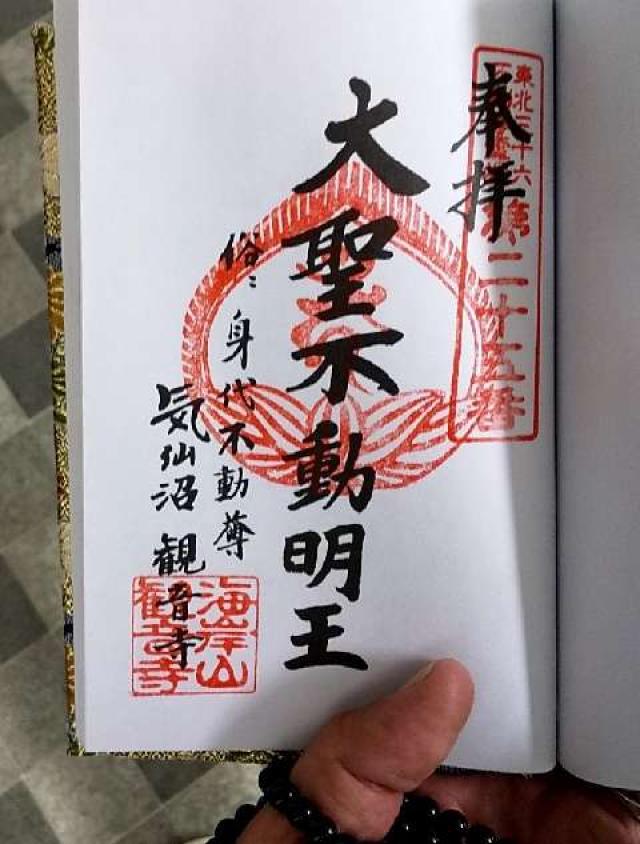 東北三十六
第二十五番
奉拝
大聖不動明王
俗ニ身代不動尊
気仙沼 観音寺
海岸山
観音寺